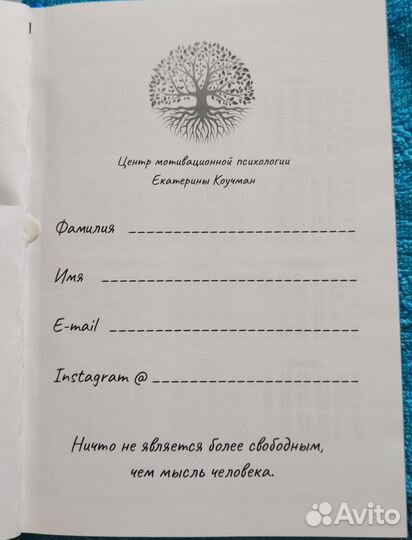 Центр мотивационной психологии
Екатерины Коучман
Фамилия
Имя
E-mail
Instagram @
Ничто не является более свободным,
чем мысль человека.
Avito